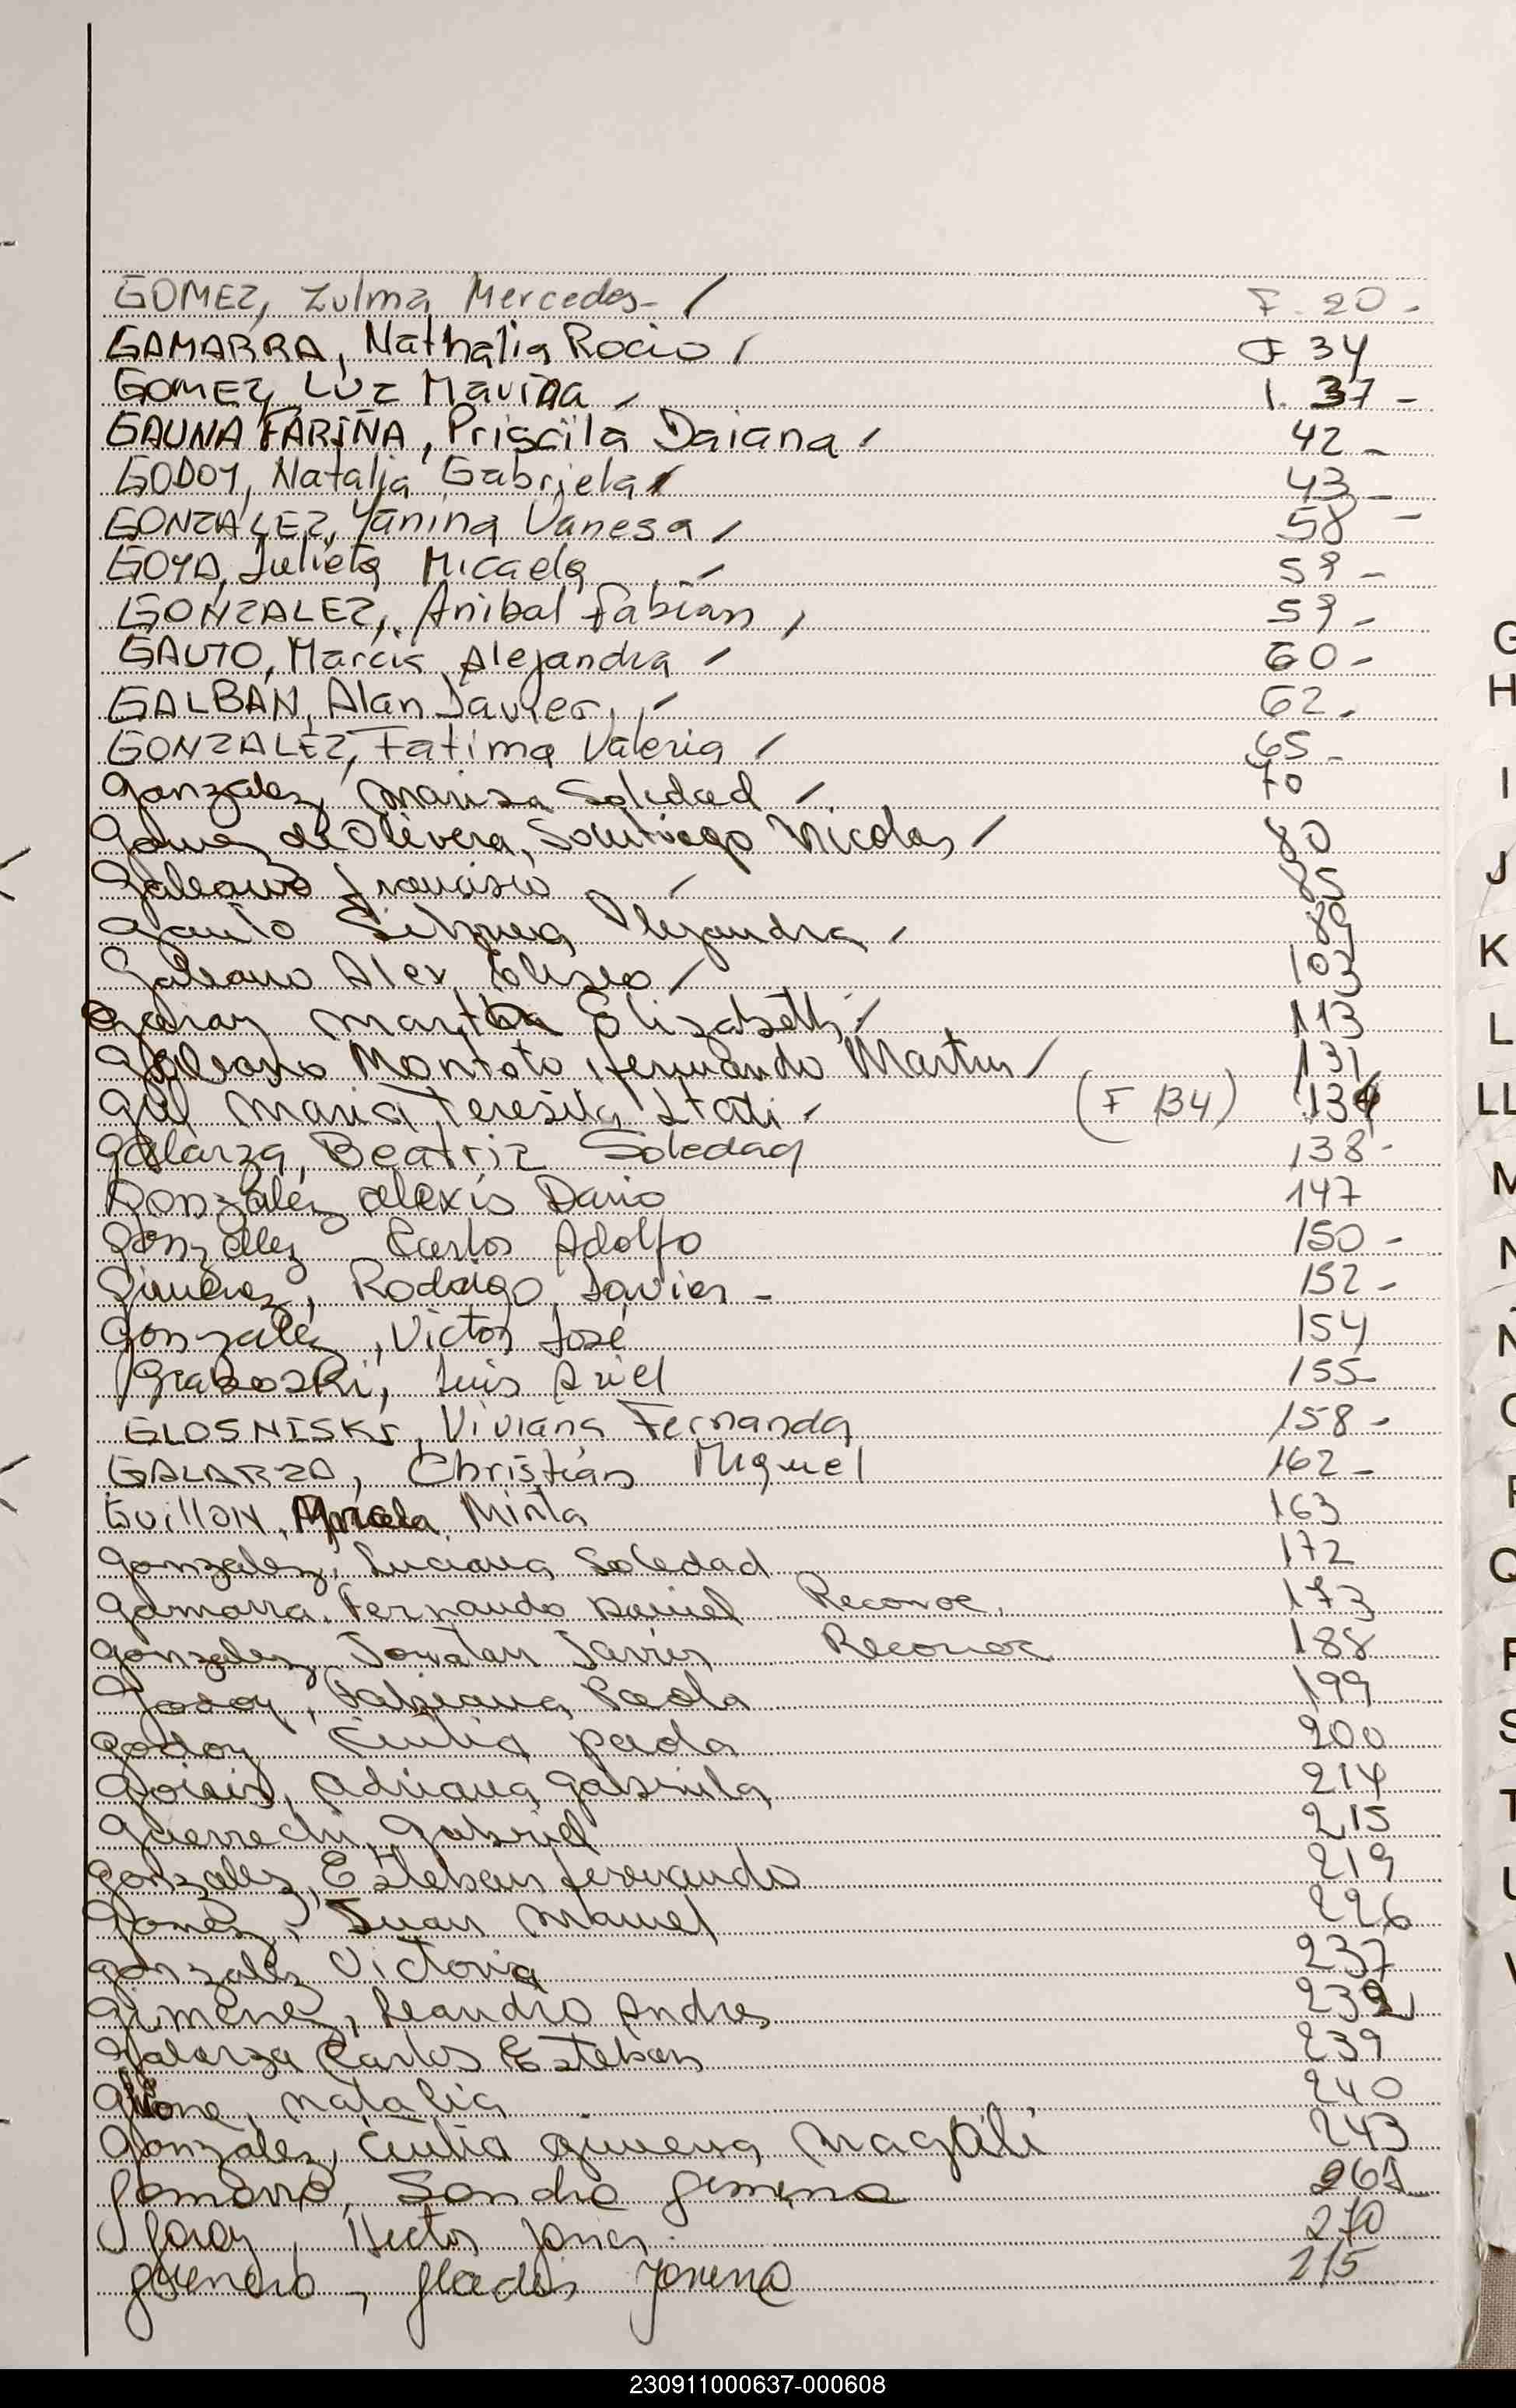 GOMEZ, Zulma Mercedes- / F. 20 -
GAMARRA, Nathalia Rocio / F 34
GOMEZ, LUZ Mavina / 1. 37 -
GAUNA FARIÑA, Priscila Daiana / 42 -
GODOY, Natalia Gabriela / 43 -
GONZALEZ, Yanina Vanesa / 58 -
GOYA, Julieta Micaela / 59 -
GONZALEZ, Anibal Fabian / 59 -
GAUTO, Marcis Alejandra / 60 -
GALBAN, Alan Javier / 62 -
GONZALEZ, Fatima Valeria / 65 -
Gonzalez, Marisa Soledad / 70
Gomez de Olivera, Santiago Nicolas / 80
Galeano Francisco / 85
Gauto Silvina Alejandra / 89
Galeano Alex Eliseo / 103
Garay Martha Elizabeth / 113
Galeano Montoto Hernando Martin / 131
Gil Maria Teresita Itati / (F 134) 134
Galarza, Beatriz Soledad 138 -
Gonzalez Alexis Dario 147
Gonzalez Carlos Adolfo 150 -
Gimenez, Rodrigo Javier - 152 -
Gonzalez, Victor José 154
Graboski, Luis Ariel 155-
GLOSNISKI, Viviana Fernanda 158 -
GALARZA, Christian Miguel 162 -
GuillON, Mirta 163
Gonzalez, Luciana Soledad 172
Gamarra, Fernando Daniel Reconoc. 173
Gonzalez, Jonatan Javier Reconoc 188
Godoy, Fabiana Paola 199
Godoy Cintia paola 200
Adriana Gabriela 214
Gabriel 215
Gonzalez, Esteban Fernando 219
Gomez, Juan Manuel 226
Gonzalez Victoria 237
Gimenez, Leandro Andres 232
Galarza Carlos Esteban 239
natalia 240
Gonzalez, Cintia Gimena Magali 243
Gamarra, Sandra Gimena 261
Garay, Hector Javier 270
Gladis 215
G
H
I
J
K
L
LL
M
N
Ñ
O
P
Q
R
S
T
U
V
230911000637-000608